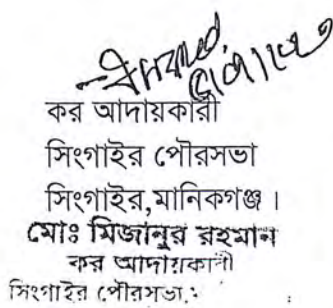 কর আদায়কারী
সিংগাইর পৌরসভা
সিংগাইর,মানিকগঞ্জ।
মোঃ মিজানুর রহমান
কর আদায়কারী
সিংগাইর পৌরসভা,